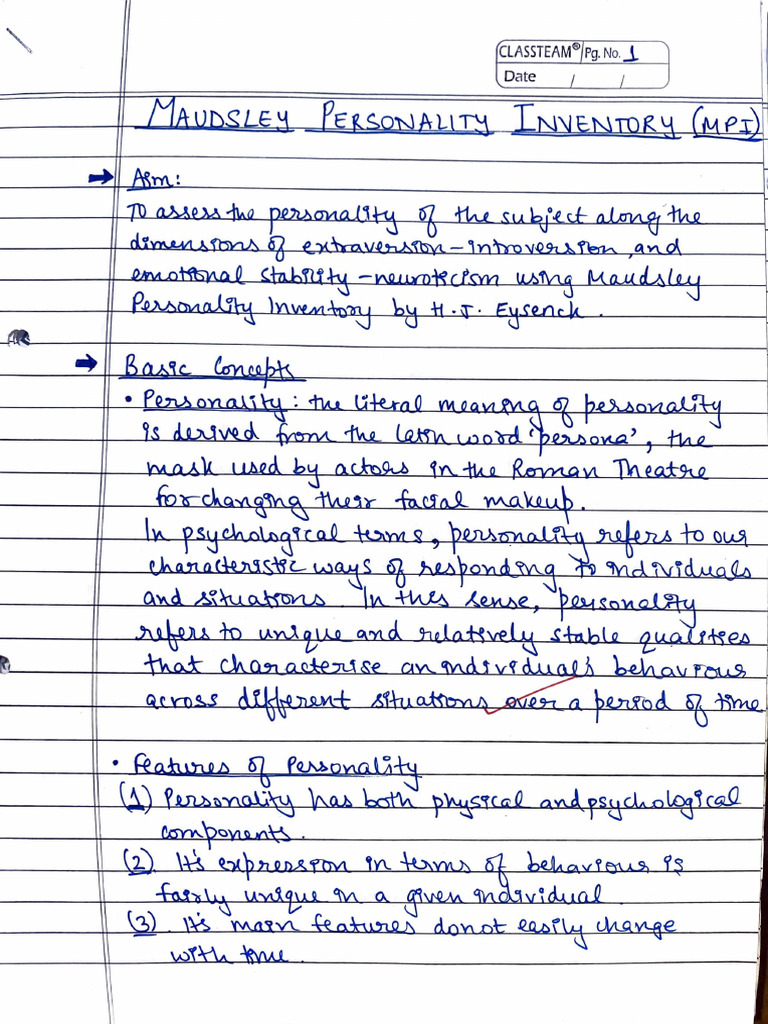 CLASSTEAM® Pg. No. 1
Date / /
MAUDSLEY PERSONALITY INVENTORY (MPI)
Aim:
To assess the personality of the subject along the
dimensions of extraversion-introversion, and
emotional stability-neuroticism using Maudsley
Personality Inventory by H.J. Eysenck.
Basic Concepts
• Personality: the literal meaning of personality
is derived from the latin word 'persona', the
mask used by actors in the Roman Theatre
for changing their facial makeup.
In psychological terms, personality refers to our
characteristic ways of responding to individuals
and situations. In this sense, personality
refers to unique and relatively stable qualities
that characterise an individual's behaviour
across different situations over a period of time
• Features of Personality
(1) Personality has both physical and psychological
components.
(2) It's expression in terms of behaviour is
fairly unique in a given individual.
(3) It's main features donot easily change
with time.